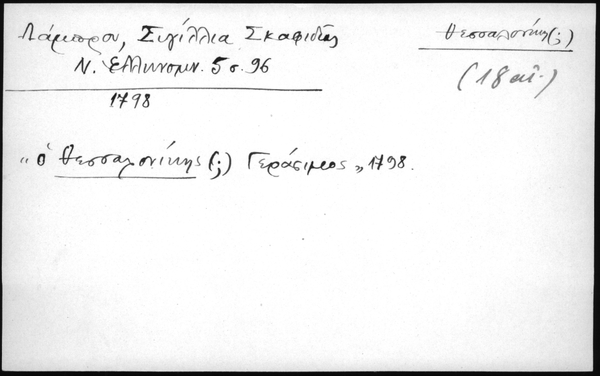 Λάμπρου, Σιγίλλια Σκαφιδιᾶς
Θεσσαλονίκης (;)
Ν. Ἑλληνομν. 5 σ. 96
(18 αἰ.)
1798
"ὁ Θεσσαλονίκης (;) Γεράσιμος" 1798.